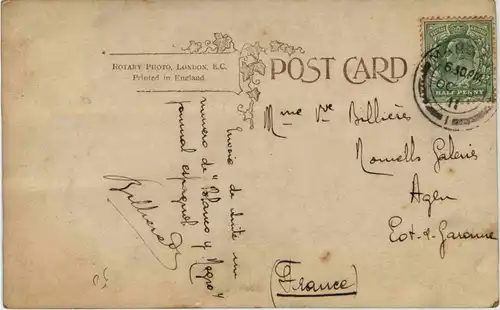 ROTARY PHOTO, LONDON, E.C.
Printed in England.
POST CARD
HALF PENNY
6.30 PM
11
Mme Vve Billières
Nouvelles Galeries
Agen
Lot-&-Garonne
(France)
Envoie de suite un
numero de "Blanco y Negro"
journal espagnol
Billieres